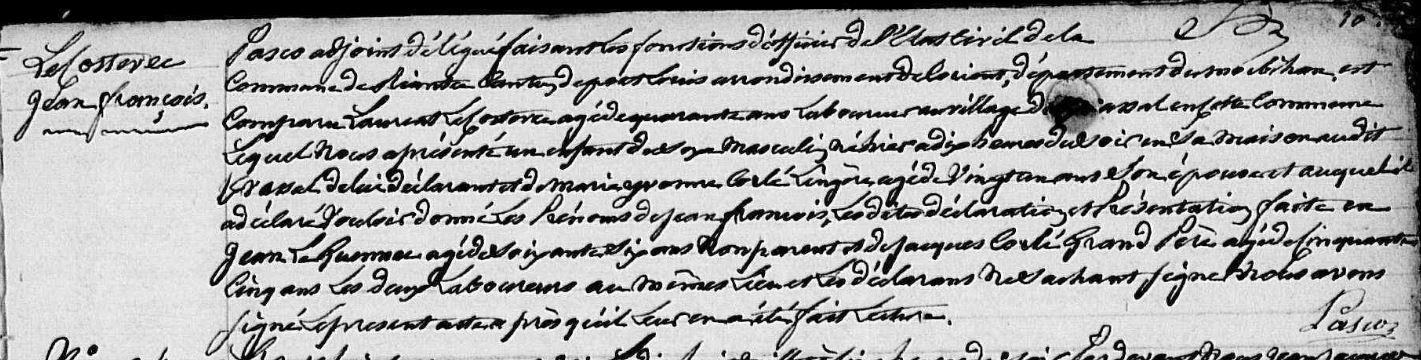 10.
Le Costevec
Jean françois.
Pasco adjoint délégué faisant les fonctions d'officier de l'Etat Civil de la
Commune de Riantec Canton de port Louis arrondissement de Lorient, département du morbihan, est
Comparu Laurent Le Costevec agé de quarante ans Laboureur au village de assal en cette Commune
Lequel Nous a présenté un enfant du sexe Masculin, né hier a dix heures du soir en sa maison audit
de lui déclarant et de Marie yvonne Corlé Lingère agée de Vingt un ans Son épouse et auquel il
a déclaré Vouloir donné Les Prénoms de Jean françois, Les dites déclaration et Présentation faite en
Jean Le Guennec agé de Soixante Six ans Non parent et de Jacques Corlé Grand Père agé de Cinquante
Cinq ans Les deux Laboureurs au Mêmes Lieu et Les déclarans Ne Sachant signé Nous avons
signé Le present acte a près qu'il Leur en a été fait Lecture.
Pasco